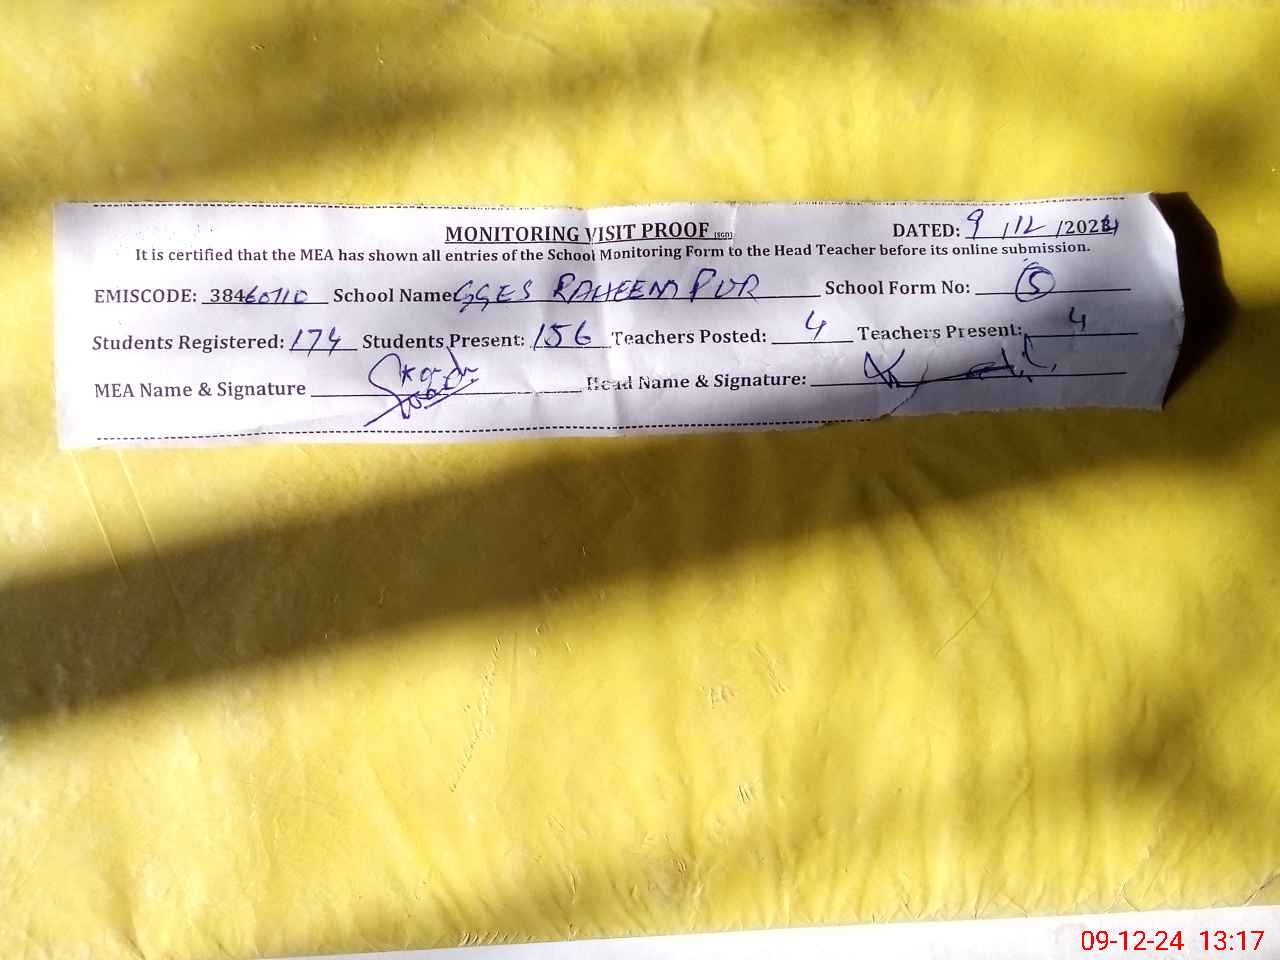 MONITORING VISIT PROOF (SGD) DATED: 9 /12 /2024
It is certified that the MEA has shown all entries of the School Monitoring Form to the Head Teacher before its online submission.
EMISCODE: 38460710 School Name GGES RAHEEM PUR School Form No: 5
Students Registered: 174 Students Present: 156 Teachers Posted: 4 Teachers Present: 4
MEA Name & Signature Head Name & Signature:
09-12-24 13:17